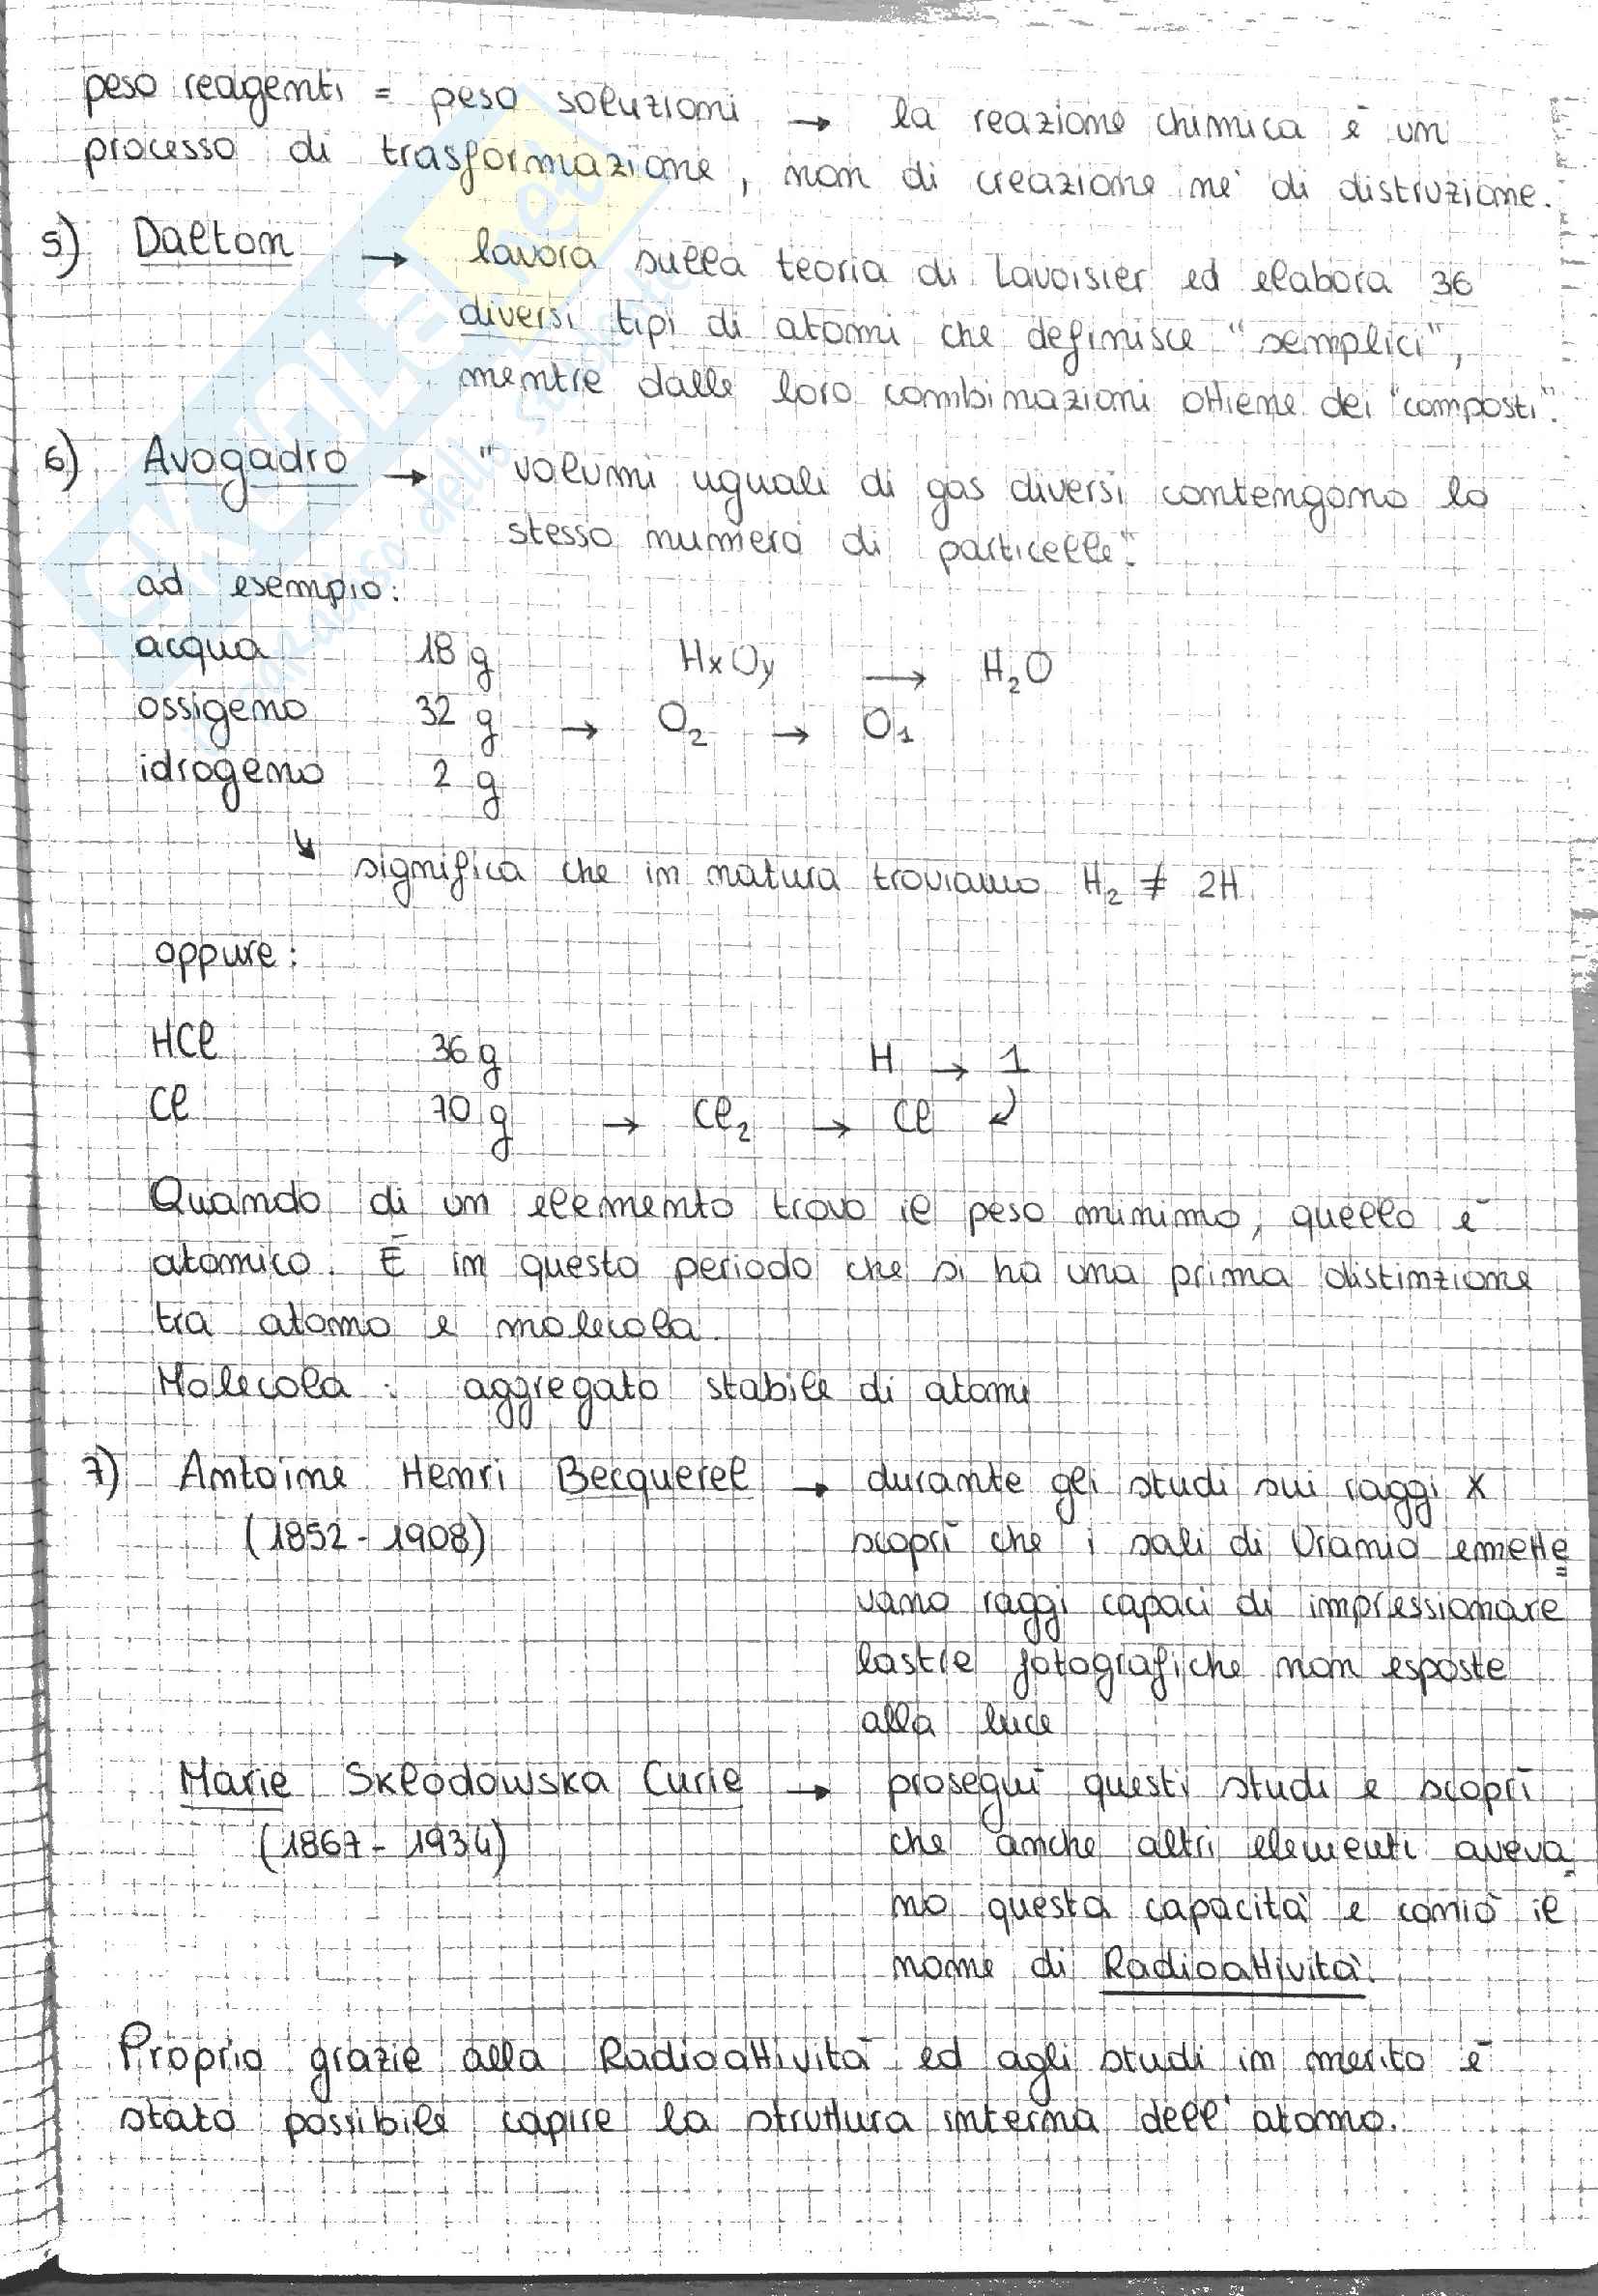 peso reagenti = peso soluzioni → la reazione chimica è un
processo di trasformazione, non di creazione nè di distruzione.
5) Dalton → lavora sulla teoria di Lavoisier ed elabora 36
diversi tipi di atomi che definisce "semplici",
mentre dalle loro combinazioni ottiene dei "composti".
6) Avogadro → "volumi uguali di gas diversi contengono lo
stesso numero di particelle".
ad esempio:
acqua 18 g HxOy → H₂O
ossigeno 32 g → O₂ → O₁
idrogeno 2 g
↘ significa che in natura troviamo H₂ ≠ 2H
oppure:
HCl 36 g H → 1
Cl 70 g → Cl₂ → Cl ↲
Quando di un elemento trovo il peso minimo, quello è
atomico. È in questo periodo che si ha una prima distinzione
tra atomo e molecola.
Molecola: aggregato stabile di atomi
7) Antoine Henri Becquerel → durante gli studi sui raggi X
(1852 - 1908) scoprì che i sali di Uranio emette
vano raggi capaci di impressionare
lastre fotografiche non esposte
alla luce
Marie Skłodowska Curie → proseguì questi studi e scoprì
(1867 - 1934) che anche altri elementi aveva
no questa capacità e coniò il
nome di Radioattività.
Proprio grazie alla Radioattività ed agli studi in merito è
stato possibile capire la struttura interna dell'atomo.